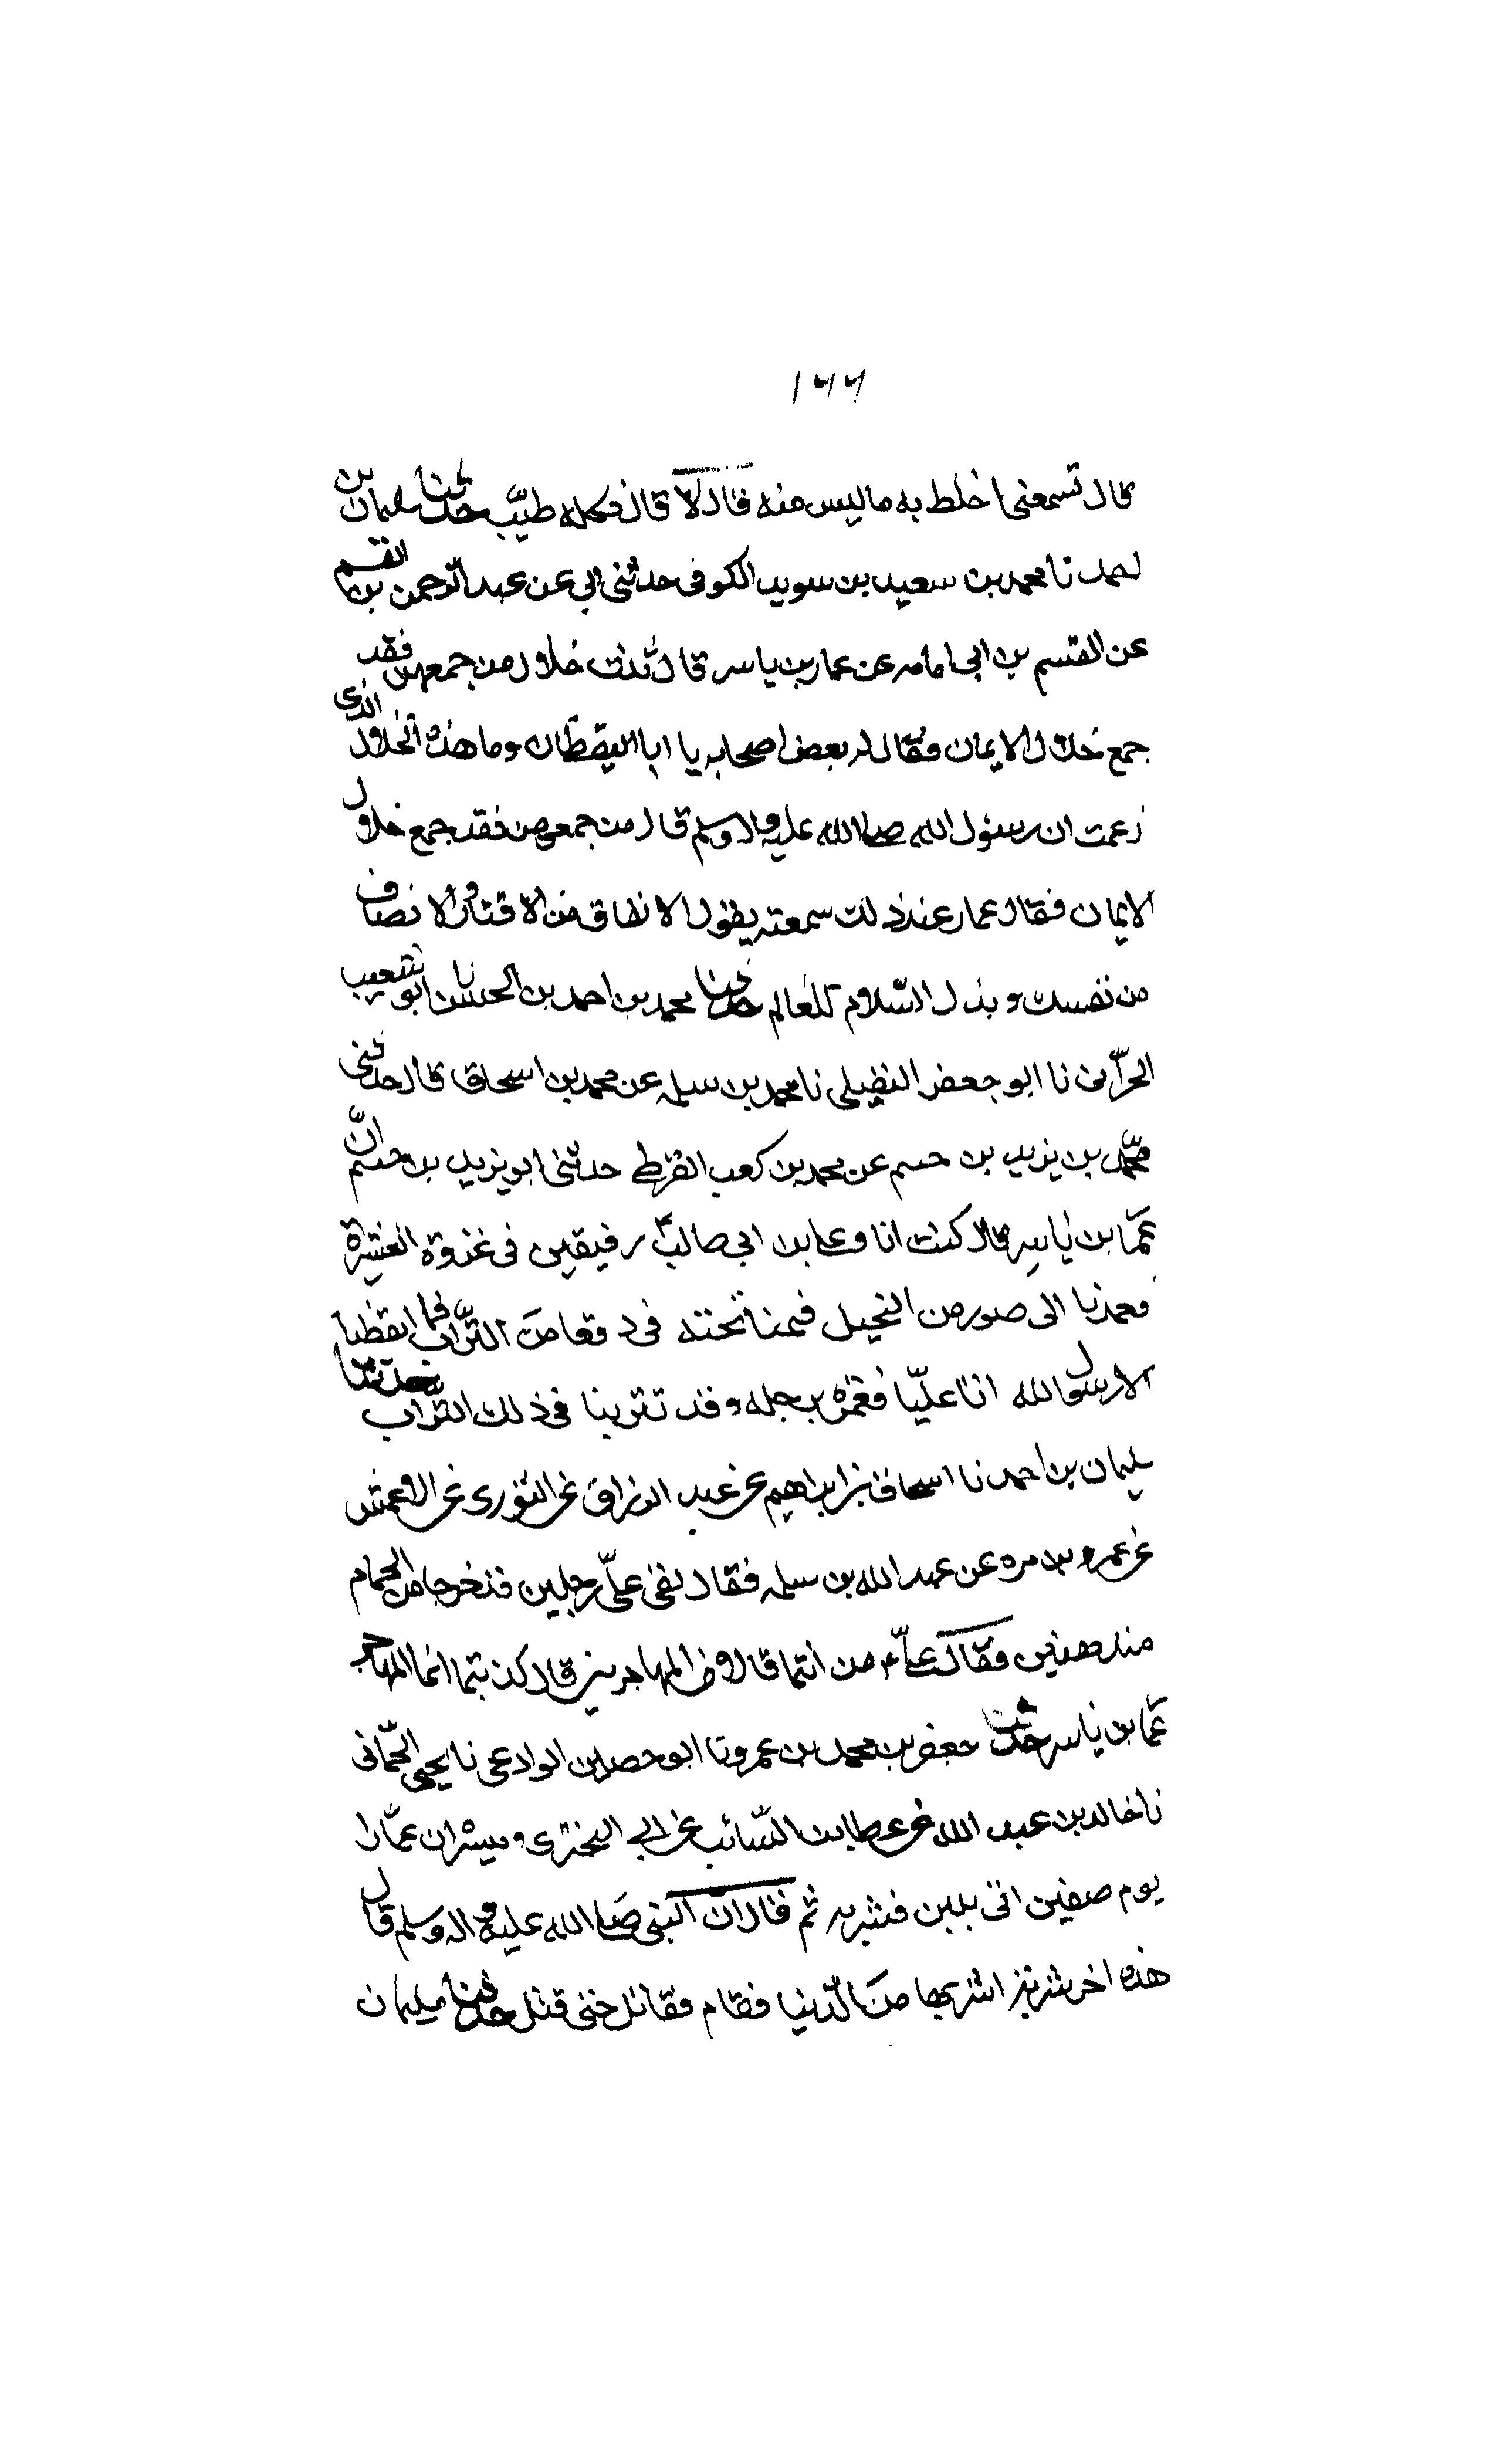 ١٧٧
قال تسمعنى اخلط به ما ليس منه قال لا قال فكله طيّب حدثنا سليمان بن
احمد نا محمد بن سعيد بن سويد الكوفى حدثنى ابى عن عبد الرحمن بن القسم
عن القسم بن ابى امامه عن عمار بن ياسر قال ثلاث خلال من جمعهن فقد
جمع خلال الايمان فقال له بعض اصحابه يا ابا اليقظان وما هذه الخلال الذى
زعمت ان رسول الله صلى الله عليه واله وسلم قال من جمعهن فقد جمع خلال
الايمان فقال عمار عند ذلك سمعته يقول الانفاق من الاقتار والانصاف
من نفسك وبذل السّلام للعالم حدثنا محمد بن احمد بن الحسن نا ابو شعيب
الحرّانى نا ابو جعفر النفيلى نا محمد بن سلمه عن محمد بن اسحاق قال حدثنى
محمّد بن يزيد بن خسم عن محمد بن كعب القرظى حدثنى ابو يزيد بن خسم انّ
عمّار بن ياسر قال كنت انا وعلى ابن ابى طالب رفيقين فى غزوة العشيرة
فعمدنا الى صور من النخيل فنمنا تحته فى دقعا من التّراب فما ايقظنا
الا رسول الله اتانا عليّا فغمزه برجله وقد تتربنا فى ذلك التّراب حدثنا
سليمان بن احمد نا اسحاق بن ابراهيم عن عبد الرزاق عن الثورى عن الاعمش
عن عمرو بن مره عن عبد الله بن سلمه فقال لقى علىّ رجلين قد خرجا من الحمام
متدهنين فقال علىّ من انتما قالا من المهاجرين قال كذبتما انما المهاجر
عمار بن ياسر حدثنا جعفر بن محمد بن عمرو نا ابو حصين الوادعى نا يحيى الحمّانى
نا خالد بن عبد الله عن عطا بن السّائب عن ابى البخترى وميسره ان عمّارا
يوم صفين اتى بلبن فشربه ثم قال انّ النبى صلى الله عليه واله وسلم قال
هذه اخر شربة اشربها من الدّنيا فقام فقاتل حتى قتل حدثنا سليمان